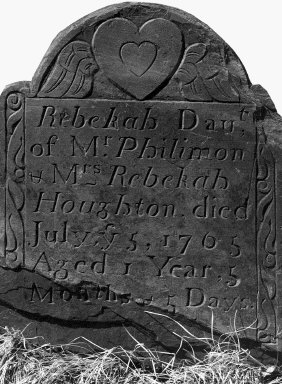 Rebekah Daut,
of Mr Philimon
& Mrs Rebekah
Houghton, died
July, ye 5, 1765
Aged 1 Year, 5
Months & 5 Days.